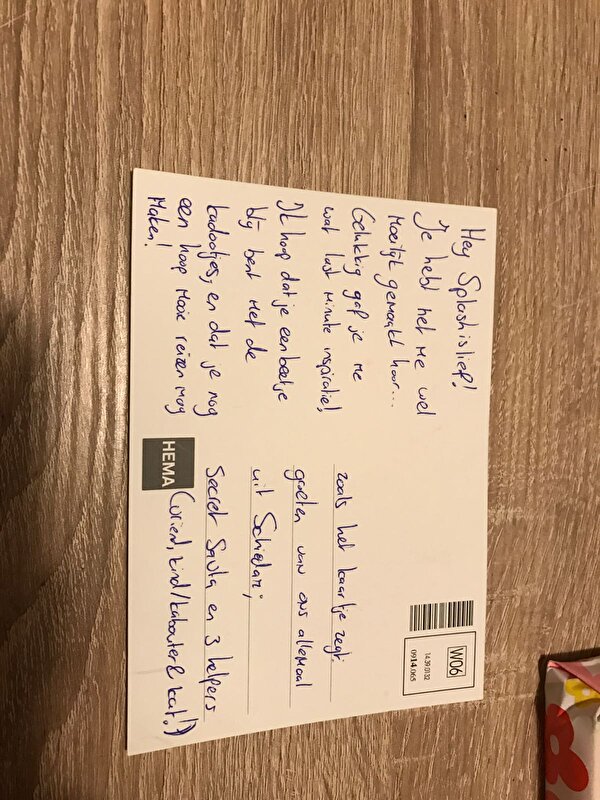 Hey Splashislief!
Je hebt het me wel
moeilijk gemaakt hoor...
Gelukkig gaf je me
wat last minute inspiratie!
Ik hoop dat je een beetje
blij bent met de
kadootjes, en dat je nog
een hoop mooie reizen mag
maken!
zoals het kaartje zegt:
groeten van ons allemaal
uit Schiedam;
Secret Santa en 3 helpers
(vriend, kind/kabouter & kat!)
HEMA
W06
14.39.01.02
0914.065